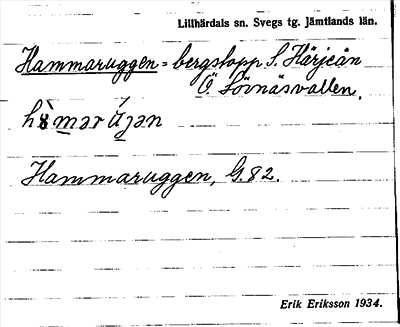 Lillhärdals sn. Svegs tg. Jämtlands län.
Hammaruggen = bergstopp S. Härjeån
Ö Lövnäsvallen.
Hammaruggen, G.82.
Erik Eriksson 1934.